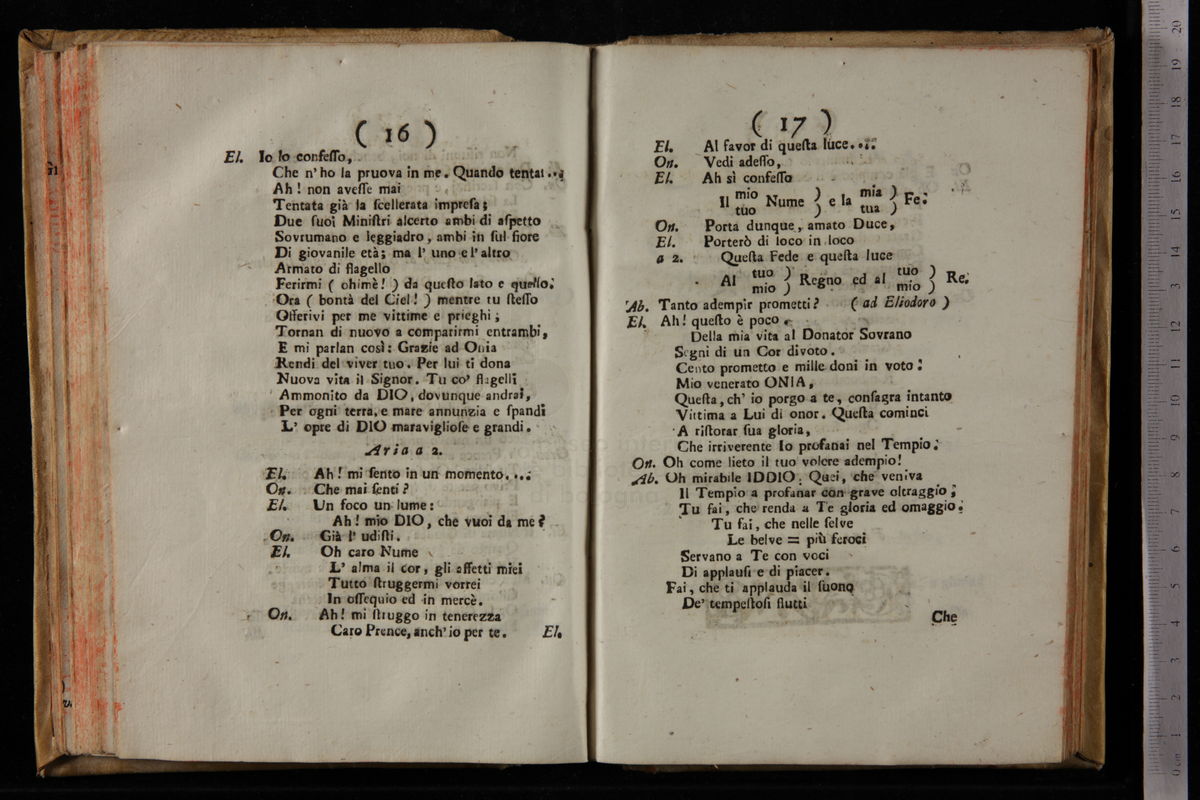 ( 16 )
El. Io lo confeſſo,
Che n' ho la pruova in me. Quando tentai ...
Ah! non aveſſe mai
Tentata già la ſcellerata impreſa;
Due ſuoi Miniſtri alcerto ambi di aſpetto
Sovrumano e leggiadro, ambi in ſul fiore
Di giovanile età; ma l' uno e l' altro
Armato di flagello
Ferirmi ( ohimè! ) da queſto lato e quello.
Ora ( bontà del Ciel! ) mentre tu ſteſſo
Offerivi per me vittime e prieghi;
Tornan di nuovo a comparirmi entrambi,
E mi parlan così: Grazie ad Onia
Rendi del viver tuo. Per lui ti dona
Nuova vita il Signor. Tu co' flagelli
Ammonito da DIO, dovunque andrai,
Per ogni terra, e mare annunzia e ſpandi
L' opre di DIO maraviglioſe e grandi.
Aria a 2.
El. Ah! mi ſento in un momento....
On. Che mai ſenti?
El. Un foco un lume:
Ah! mio DIO, che vuoi da me?
On. Già l' udiſti.
El. Oh caro Nume
L' alma il cor, gli affetti miei
Tutto ſtruggermi vorrei
In oſſequio ed in mercè.
On. Ah! mi ſtruggo in tenerezza
Caro Prence, anch' io per te. El.
( 17 )
El. Al favor di queſta luce....
On. Vedi adeſſo,
El. Ah sì confeſſo
Il mio ) Nume e la mia ) Fe.
tuo ) tua )
On. Porta dunque, amato Duce,
El. Porterò di loco in loco
a 2. Queſta Fede e queſta luce
Al tuo ) Regno ed al tuo ) Re.
mio ) mio )
Ab. Tanto adempir prometti? ( ad Eliodoro )
El. Ah! queſto è poco.
Della mia vita al Donator Sovrano
Segni di un Cor divoto.
Cento prometto e mille doni in voto:
Mio venerato ONIA,
Queſta, ch' io porgo a te, conſagra intanto
Vittima a Lui di onor. Queſta cominci
A riſtorar ſua gloria,
Che irriverente Io profanai nel Tempio.
On. Oh come lieto il tuo volere adempio!
Ab. Oh mirabile IDDIO. Quei, che veniva
Il Tempio a profanar con grave oltraggio;
Tu fai, che renda a Te gloria ed omaggio.
Tu fai, che nelle ſelve
Le belve = più feroci
Servano a Te con voci
Di applauſi e di piacer.
Fai, che ti applauda il ſuono
De' tempeſtoſi flutti
Che